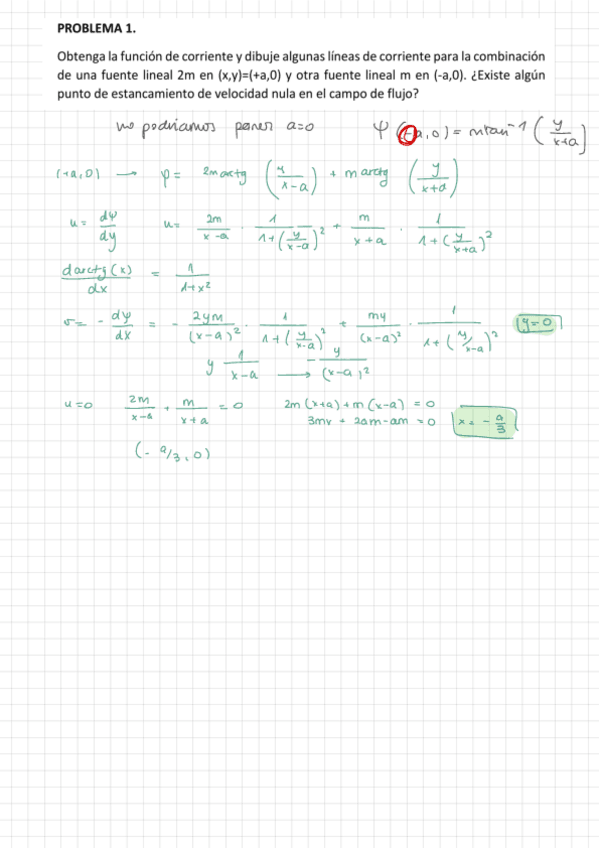 PROBLEMA 1.
Obtenga la función de corriente y dibuje algunas líneas de corriente para la combinación
de una fuente lineal 2m en (x,y)=(+a,0) y otra fuente lineal m en (-a,0). ¿Existe algún
punto de estancamiento de velocidad nula en el campo de flujo?
no podriamos poner a=0 ψ (-a,0) = m tan⁻¹ (y/(x+a))
(+a,0) → ψ = 2m arctg (y/(x-a)) + m arctg (y/(x+a))
u = dψ/dy u = 2m/(x-a) · 1/(1+(y/(x-a))²) + m/(x+a) · 1/(1+(y/(x+a))²)
d arctg(x)/dx = 1/(1+x²)
v = - dψ/dx = - 2ym/(x-a)² · 1/(1+(y/(x-a))²) + my/(x-a)² · 1/(1+(y/(x-a))²) y=0
y 1/(x-a) → - y/(x-a)²
u=0 2m/(x-a) + m/(x+a) = 0 2m(x+a)+m(x-a) = 0
3mx + 2am-am = 0 x = - a/3
(- a/3, 0)